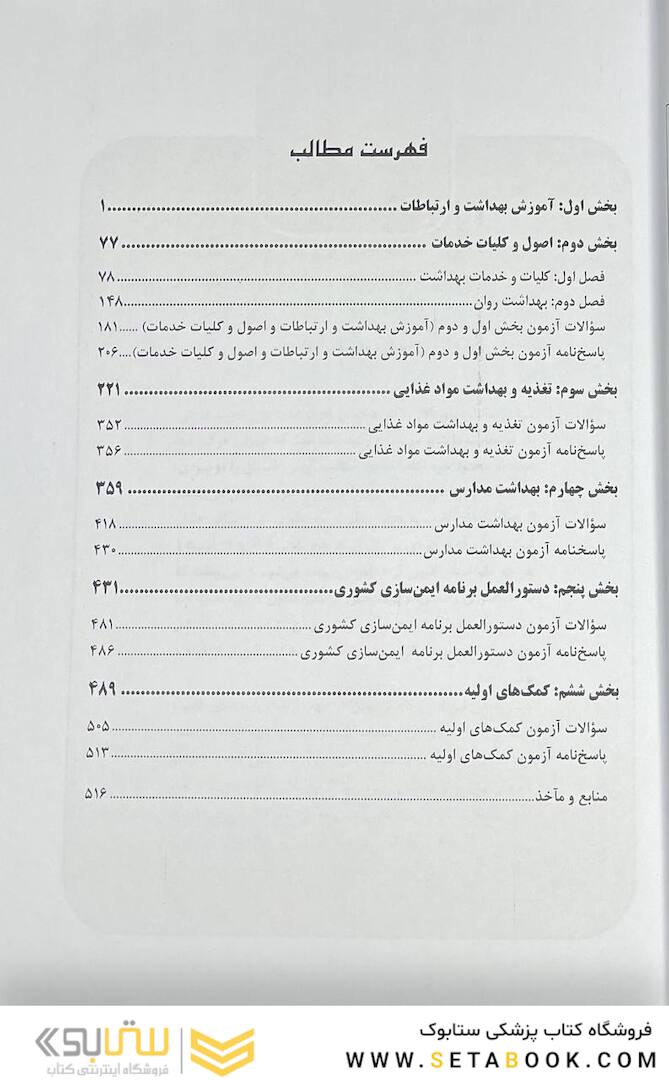 فهرست مطالب
بخش اول: آموزش بهداشت و ارتباطات ........ ۱
بخش دوم: اصول و کلیات خدمات ........ ۷۷
فصل اول: کلیات و خدمات بهداشت ........ ۷۸
فصل دوم: بهداشت روان ........ ۱۴۸
سؤالات آزمون بخش اول و دوم (آموزش بهداشت و ارتباطات و اصول و کلیات خدمات) ...... ۱۸۱
پاسخ‌نامه آزمون بخش اول و دوم (آموزش بهداشت و ارتباطات و اصول و کلیات خدمات).... ۲۰۶
بخش سوم: تغذیه و بهداشت مواد غذایی ........ ۲۲۱
سؤالات آزمون تغذیه و بهداشت مواد غذایی ........ ۳۵۲
پاسخ‌نامه آزمون تغذیه و بهداشت مواد غذایی ........ ۳۵۶
بخش چهارم: بهداشت مدارس ........ ۳۵۹
سؤالات آزمون بهداشت مدارس ........ ۴۱۸
پاسخنامه آزمون بهداشت مدارس ........ ۴۳۰
بخش پنجم: دستورالعمل برنامه ایمن‌سازی کشوری ........ ۴۳۱
سؤالات آزمون دستورالعمل برنامه ایمن‌سازی کشوری ........ ۴۸۱
پاسخ‌نامه آزمون دستورالعمل برنامه ایمن‌سازی کشوری ........ ۴۸۶
بخش ششم: کمک‌های اولیه ........ ۴۸۹
سؤالات آزمون کمک‌های اولیه ........ ۵۰۵
پاسخ‌نامه آزمون کمک‌های اولیه ........ ۵۱۳
منابع و مآخذ ........ ۵۱۶
فروشگاه کتاب پزشکی ستابوک
WWW.SETABOOK.COM
ستابوک
فروشگاه اینترنتی کتاب